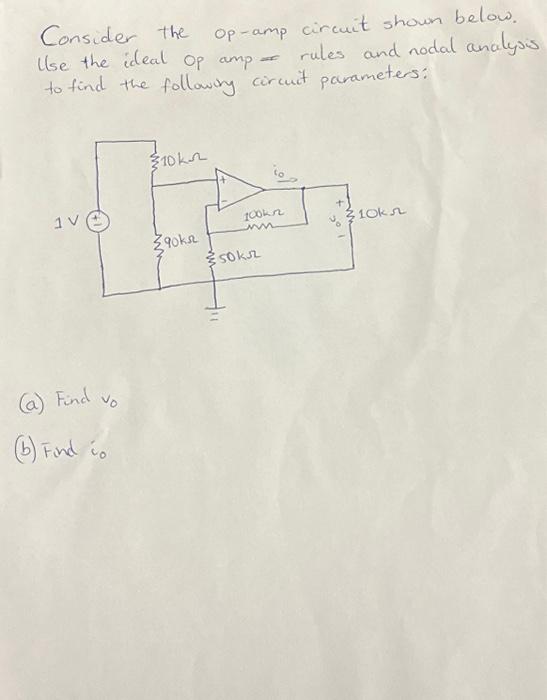 Consider the op-amp circuit shown below.
Use the ideal op amp rules and nodal analysis
to find the following circuit parameters:
10kΩ
i₀
+
-
1V
+
-
100kΩ
+
v₀
-
10kΩ
90kΩ
50kΩ
(a) Find v₀
(b) Find i₀